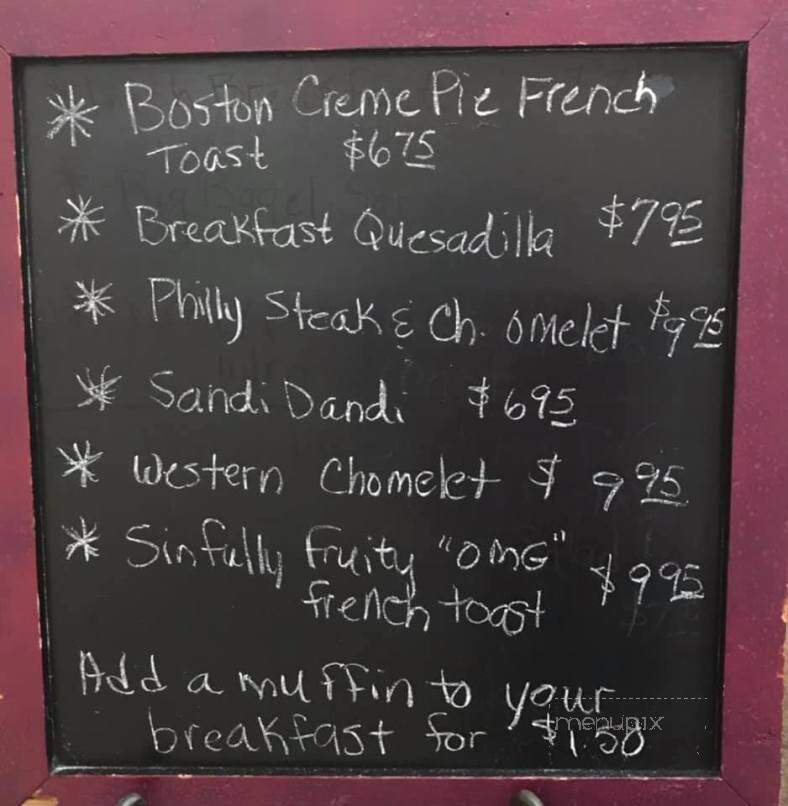 * Boston Creme Pie French
Toast $6 75
* Breakfast Quesadilla $7 95
* Philly Steak & Ch. omelet $9 95
* Sandi Dandi $6 95
* Western Chomelet $ 9 95
* Sinfully Fruity "OMG"
french toast $9 95
Add a muffin to your
breakfast for $1.50
menupix